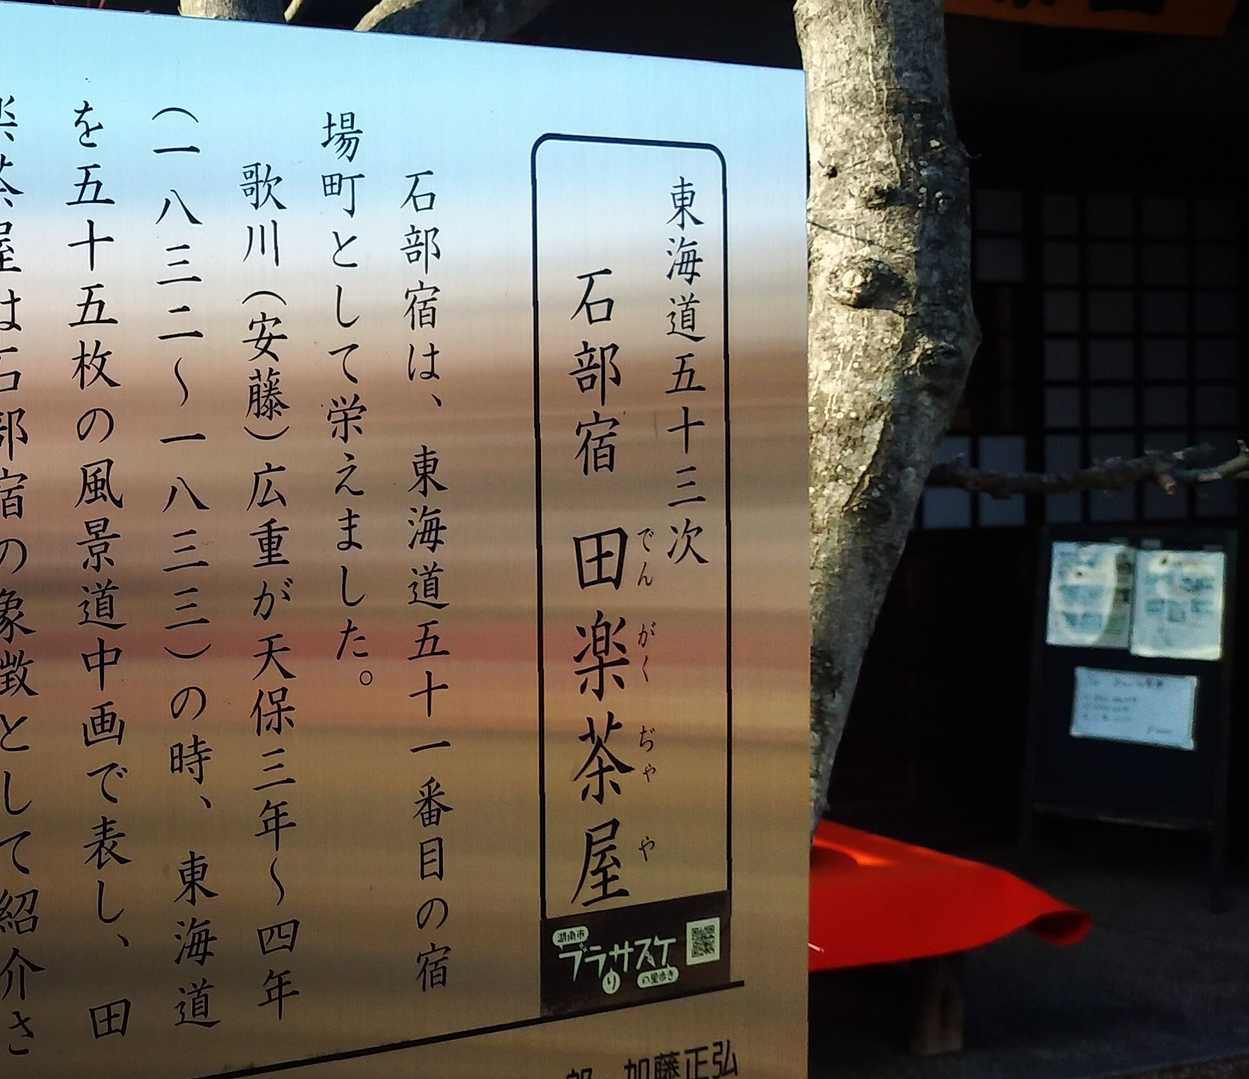 東海道五十三次
石部宿 田楽茶屋
でん がく ぢゃ や
石部宿は、東海道五十一番目の宿
場町として栄えました。
歌川(安藤)広重が天保三年〜四年
(一八三二〜一八三三)の時、東海道
を五十五枚の風景道中画で表し、田
楽茶屋は石部宿の象徴として紹介さ
湖南市
ブラリサスケ
加藤正弘